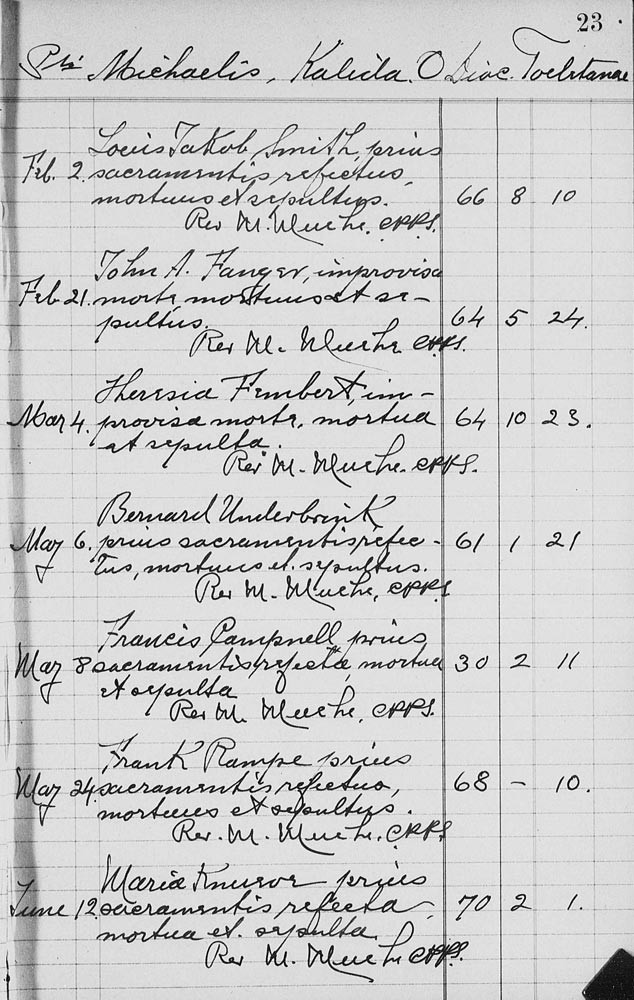 23
Michaelis, Kalida. O Dioc. Toletanae
Louis Jakob Smith, prius
Feb. 2. sacramentis refectus,
mortuus et sepultus. 66 8 10
Rev M. Muehe, CPPS.
John A. Fanger, improvisa
Feb 21. morte, mortuus et se-
pultus. 64 5 24.
Rev M. Muehe CPPS.
Theresia Fembert, im-
Mar 4. provisa morte, mortua 64 10 23.
et sepulta.
Rev M. Muehe. CPPS.
Bernard Underbrink
May 6. prius sacramentis, refec- 61 1 21
tus, mortuus et sepultus.
Rev M. Muehe, CPPS
Francis Campnell prius
May 8 sacramentis refecta, mortua 30 2 11
et sepulta
Rev M. Muehe, CPPS.
Frank Rampe prius
May 24. sacramentis refectus, 68 - 10.
mortuus et sepultus.
Rev. M. Muehe, CPPS
Maria Knueve prius
June 12. sacramentis refecta, 70 2 1.
mortua et sepulta.
Rev M. Muehe CPPS.